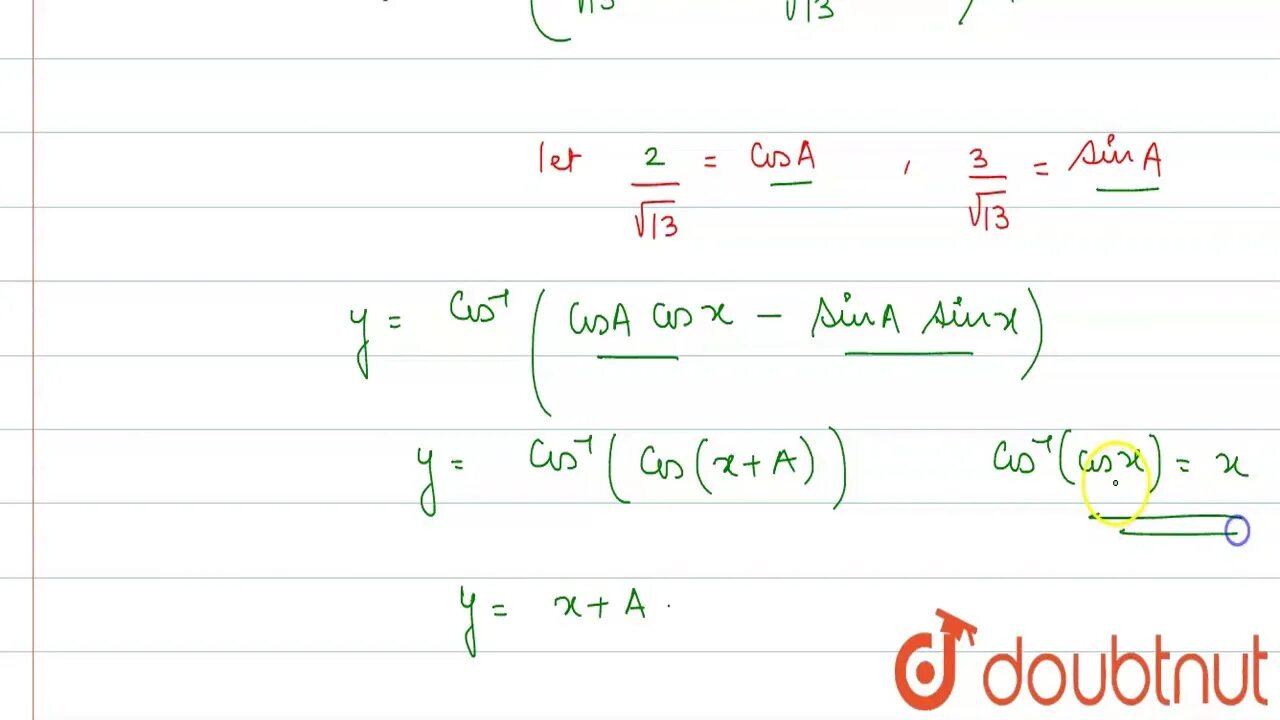 √13 √13
let 2/√13 = cos A , 3/√13 = sin A
y = cos⁻¹ ( cos A cos x − sin A sin x )
y = cos⁻¹ ( cos ( x + A ) ) cos⁻¹ ( cos x ) = x
y = x + A .
doubtnut